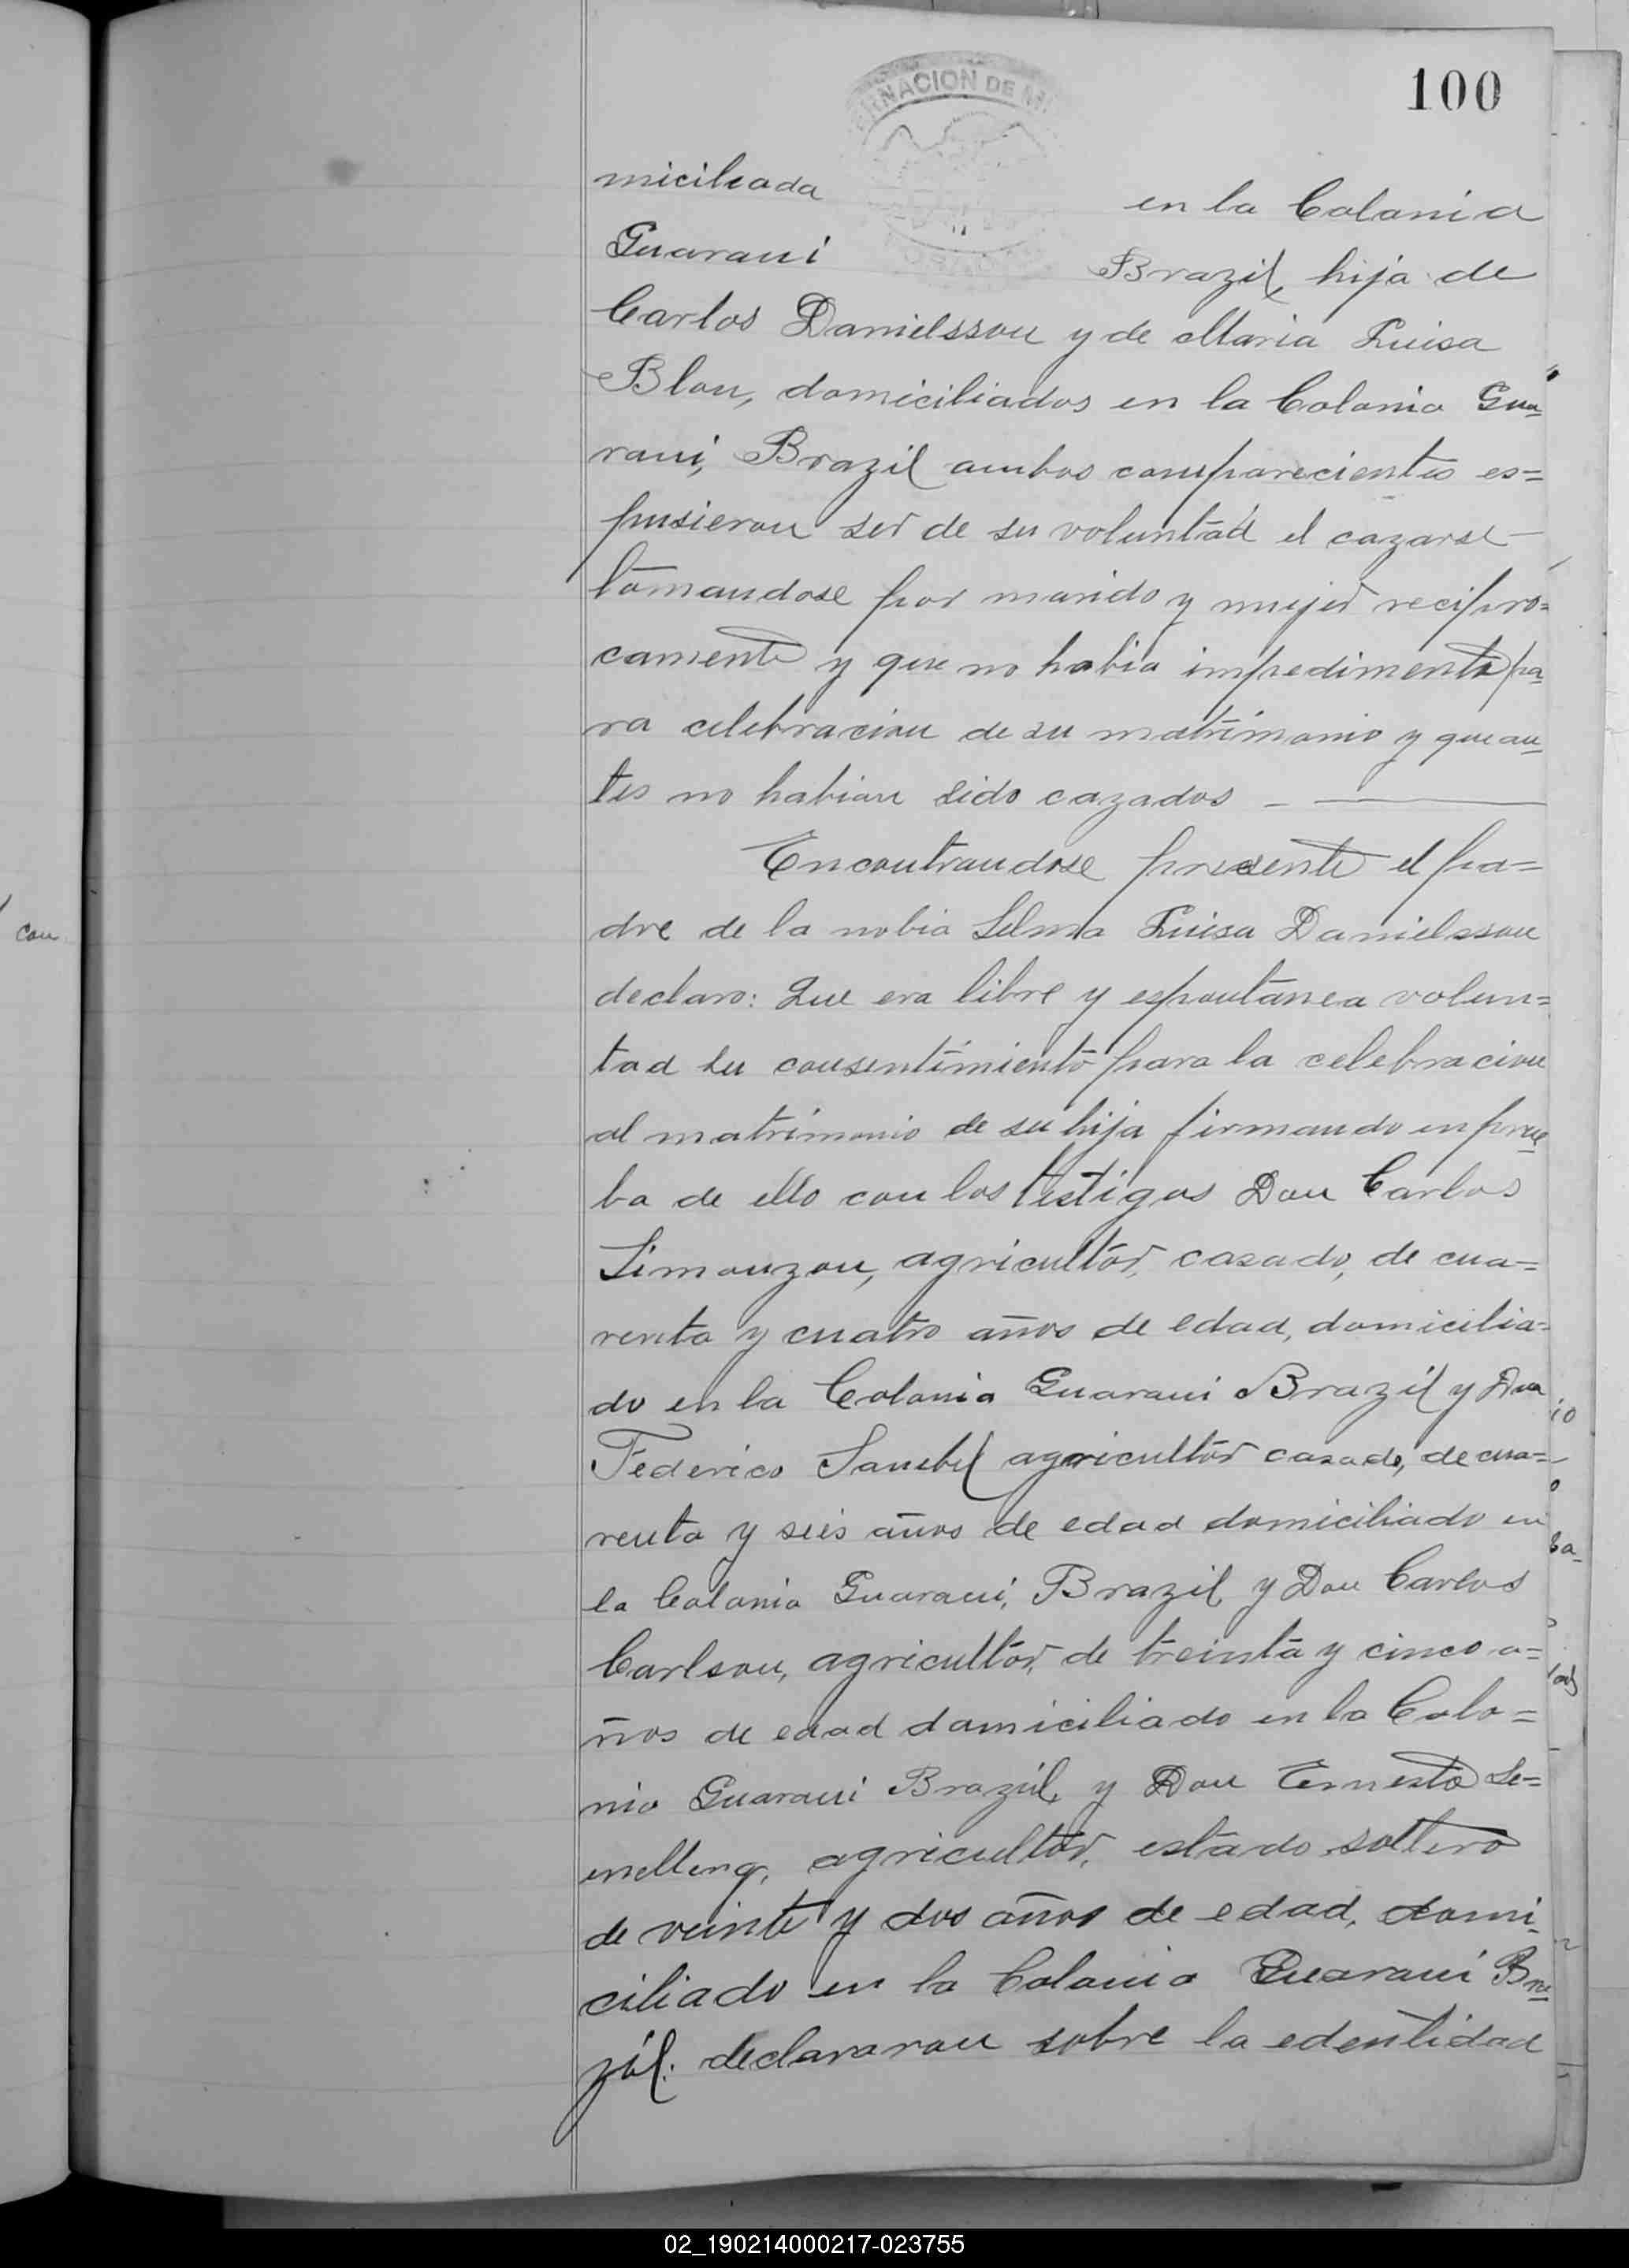 100
NACION DE MI
miciliada en la Colonia
Guarani Brazil, hija de
Carlos Danielsson y de Maria Luisa
Blon, domiciliados en la Colonia Gua-
rani, Brazil ambos comparecientes es=
pusieron ser de su voluntad el cazarse
tomandose por marido y mujer recipro=
camente y que no habia impedimento pa-
ra celebracion de su matrimonio y que an-
tes no habian sido cazados
Encontrandose presente el pa=
dre de la nobia Selma Luisa Danielsson
con
declaro: Que era libre y espontanea volun=
tad su consentimiento para la celebracion
al matrimonio de su hija firmando en prue-
ba de ello con los testigos Don Carlos
Simonzon, agricultor, casado, de cua=
renta y cuatro años de edad, domicilia=
do en la Colonia Guarani Brazil y Don
Federico agricultor casado, de cua=
renta y seis años de edad domiciliado en
la Colonia Guarani, Brazil y Don Carlos
Carlson, agricultor, de treinta y cinco a=
ños de edad domiciliado en la Colo=
nia Guarani Brazil, y Don Ernesto
agricultor, estado soltero
de veinte y dos años de edad, domi-
ciliado en la Colonia Guarani Bra-
zil. declararon sobre la edentidad
02_190214000217-023755